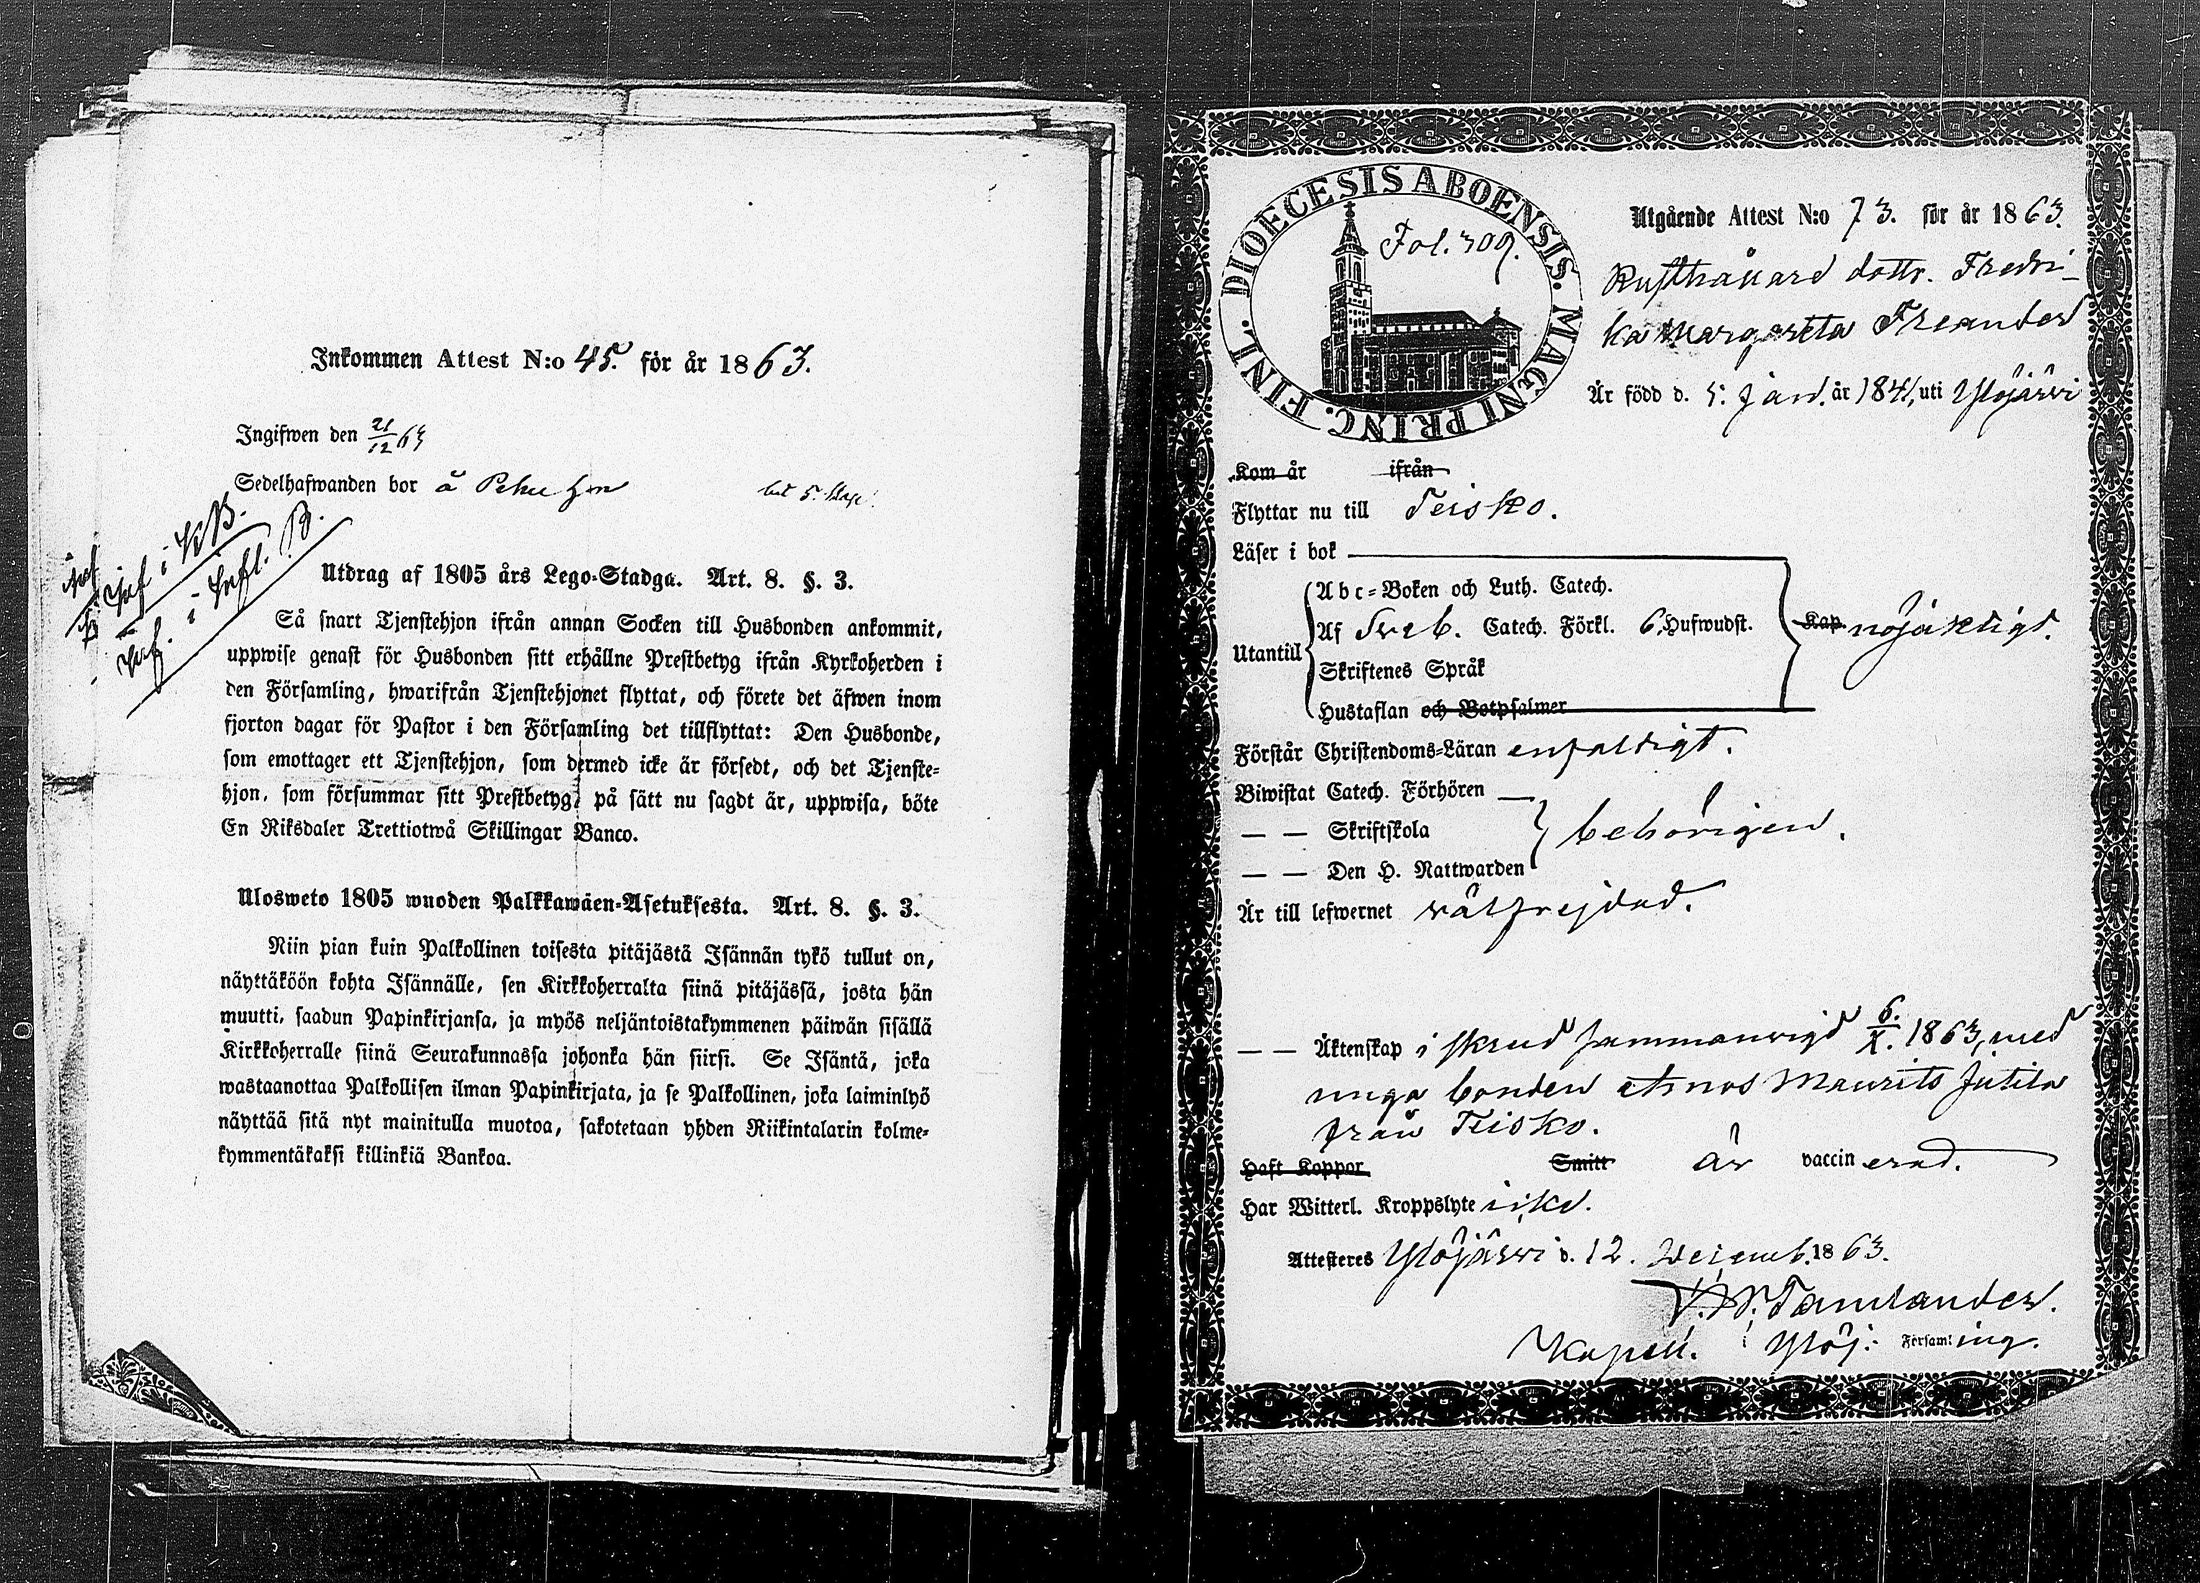 Inkommen Attest N:o 45. för år 1863.
Ingifwen den 21/12 63
Sedelhafwanden bor å
inf i KB.
inf. i Infl. B.
Utdrag af 1805 års Lego-Stadga. Art. 8. §. 3.
Så snart Tjenstehjon ifrån annan Socken till Husbonden ankommit,
uppwise genast för Husbonden sitt erhållne Prestbetyg ifrån Kyrkoherden i
den Församling, hwarifrån Tjenstehjonet flyttat, och förete det äfwen inom
fjorton dagar för Pastor i den Församling det tillflyttat: Den Husbonde,
som emottager ett Tjenstehjon, som dermed icke är försedt, och det Tjenste-
hjon, som försummar sitt Prestbetyg, på sätt nu sagdt är, uppwisa, böte
En Riksdaler Trettiotwå Skillingar Banco.
Ulosweto 1805 wuoden Palkkawäen-Asetuksesta. Art. 8. §. 3.
Niin pian kuin Palkollinen toisesta pitäjästä Isännän tykö tullut on,
näyttäköön kohta Isännälle, sen Kirkkoherralta siinä pitäjässä, josta hän
muutti, saadun Papinkirjansa, ja myös neljäntoistakymmenen päiwän sisällä
Kirkkoherralle siinä Seurakunnassa johonka hän siirsi. Se Isäntä, joka
wastaanottaa Palkollisen ilman Papinkirjata, ja se Palkollinen, joka laiminlyö
näyttää sitä nyt mainitulla muotoa, sakotetaan yhden Riikintalarin kolme-
kymmentäkaksi killinkiä Bankoa.
DIOECESIS ABOENSIS. MAGNI PRINC. FINL.
Fol. 309.
Utgående Attest N:o 73. för år 1863.
Rusthållare dottr. Fredri-
ka Margareta Theander
Är född d. 5. Jan. år 1841, uti Ylöjärwi
Kom år ifrån
Flyttar nu till Teisko.
Läser i bok
Abc-Boken och Luth. Catech.
Utantill Af Sveb. Catech. Förkl. 6, Hufwudst. Kap. nöjaktigt.
Skriftenes Språk
Hustaflan och Botpsalmer
Förstår Christendoms-Läran enfaldigt.
Biwistat Catech. Förhören
— — Skriftskola behörigen.
— — Den H. Nattwarden
Är till lefwernet wälfrejdad.
— — Äktenskap i skrud sammanvigd 6/X. 1863, med
unga bonden Amos Maurits Jutila
från Teisko.
Haft Koppor Smitt är vaccinerad.
Har Witterl. Kroppslyte icke.
Attesteres Ylöjärwi d. 12. Decemb. 1863.
Tamlander.
Kapell. i Ylöj: Församling.